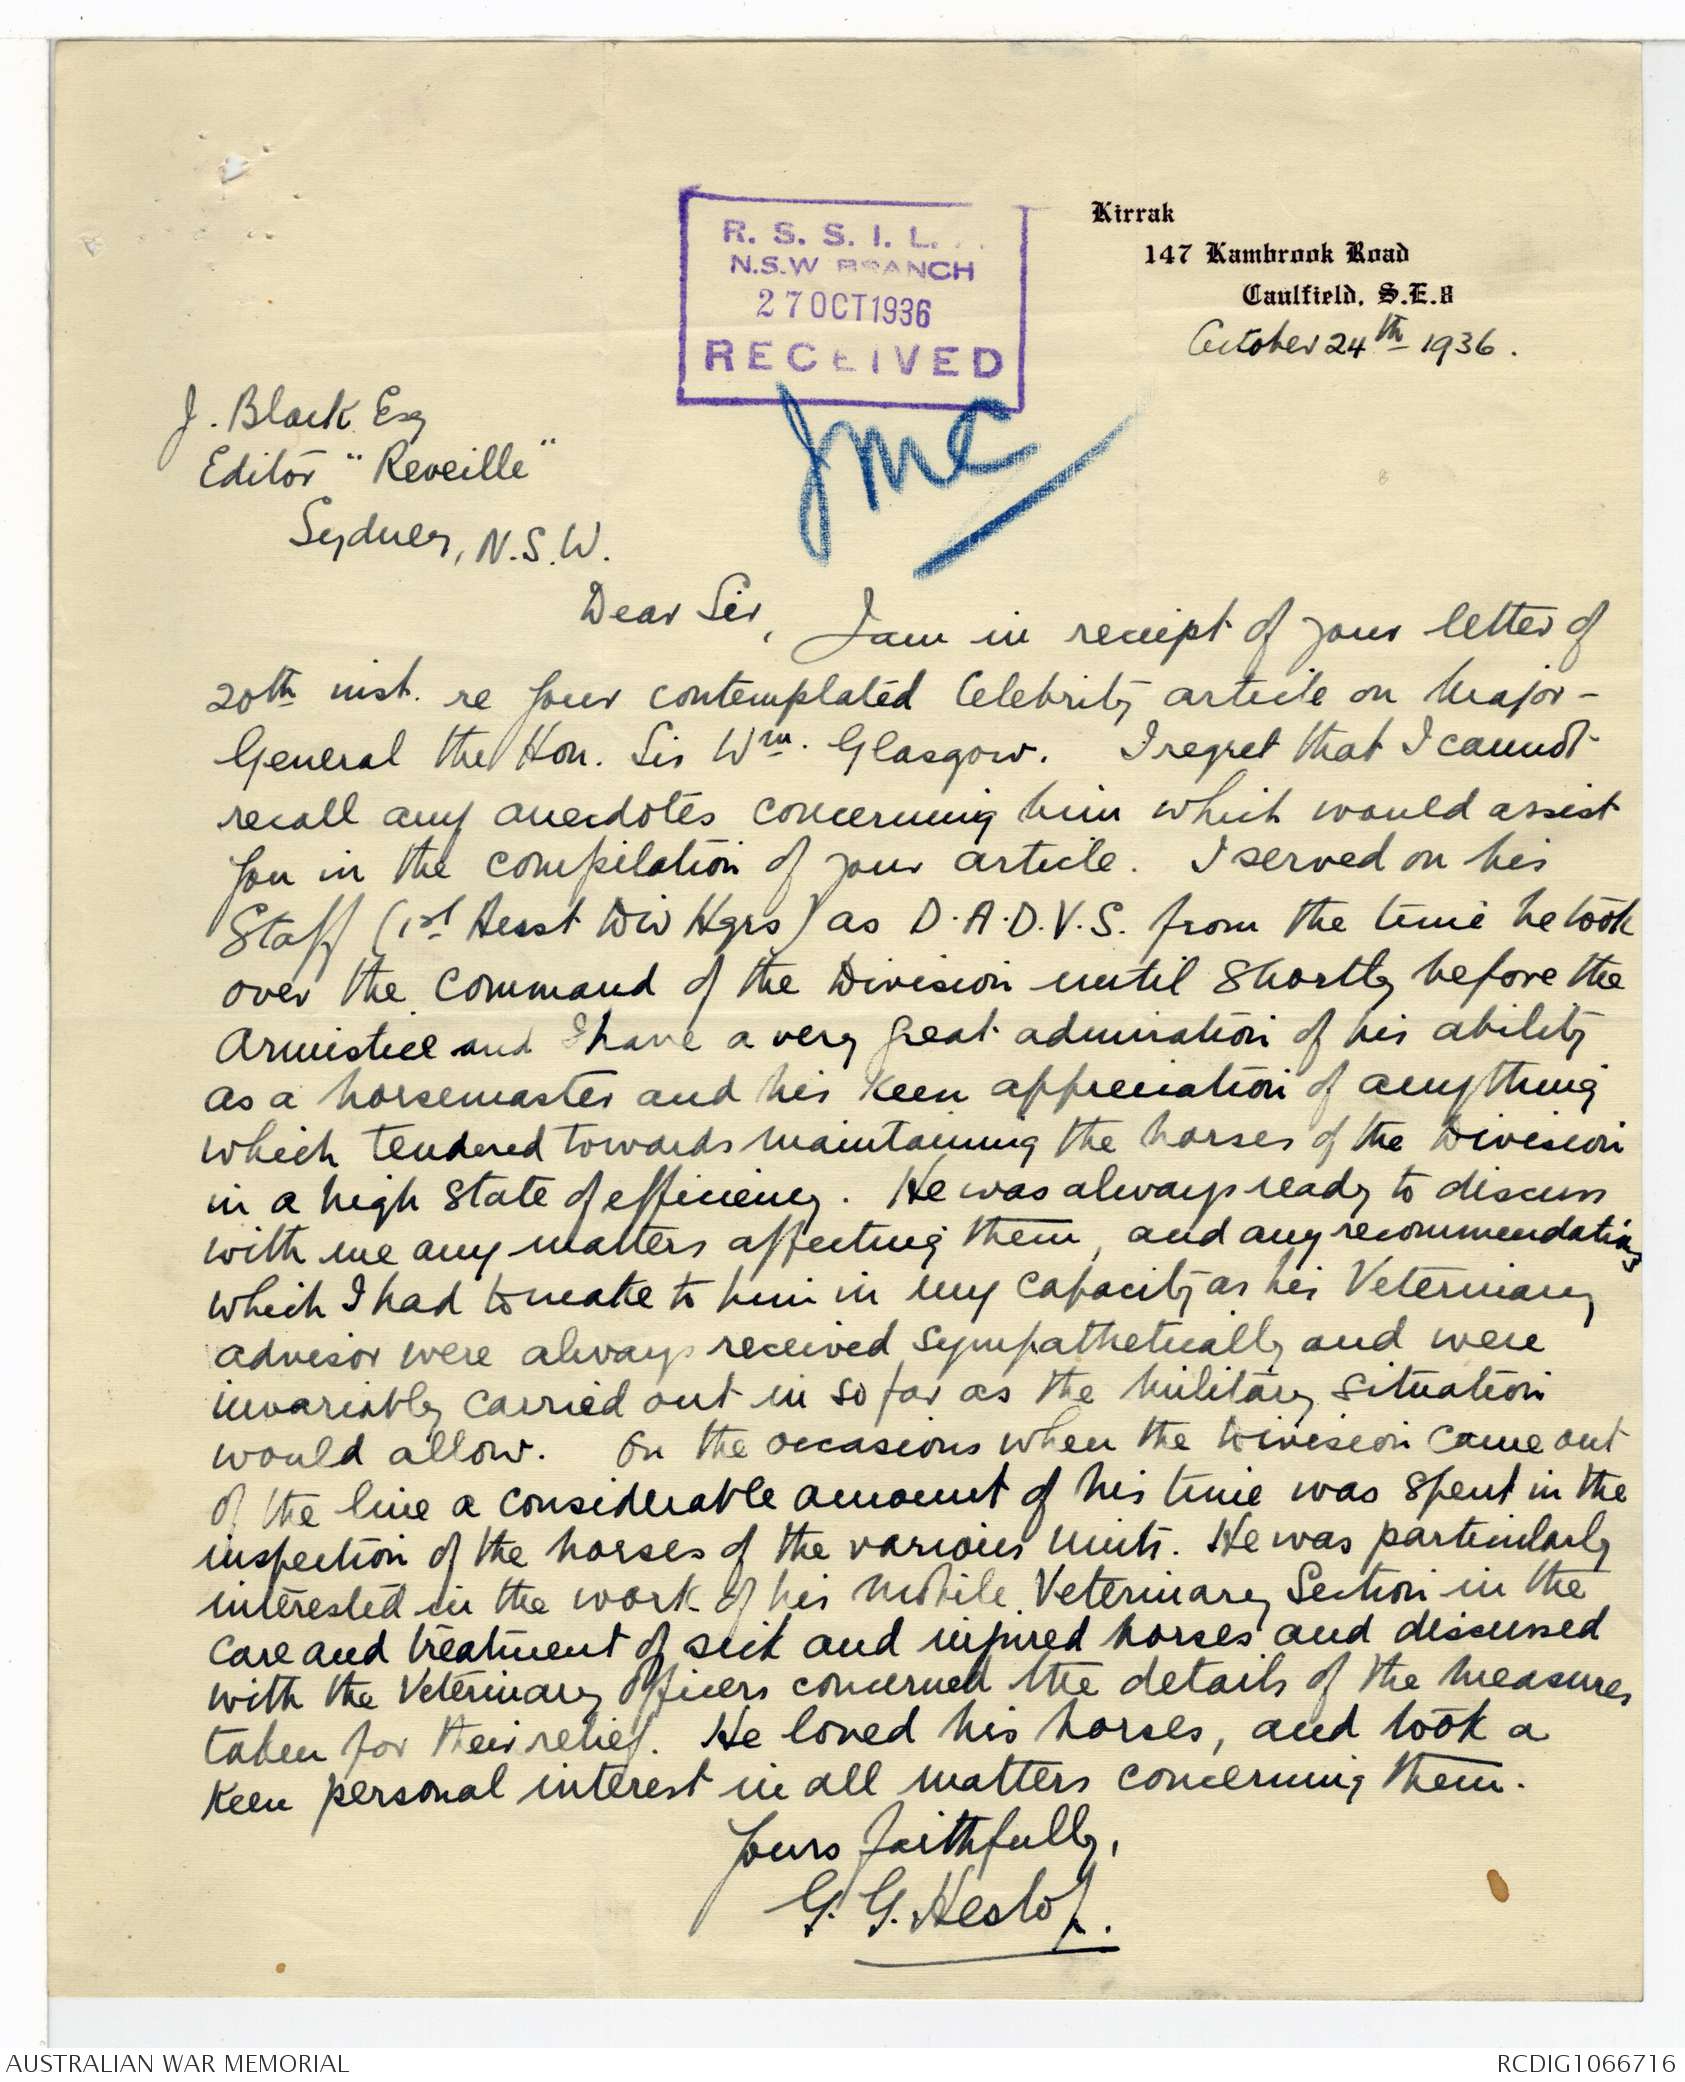 Kirrak
147 Kambrook Road
Caulfield. S.E.8
October 24th 1936.
R. S. S. I. L.
N.S.W BRANCH
27 OCT 1936
RECEIVED
JMC
J. Black Esq
Editor "Reveille"
Sydney, N.S.W.
Dear Sir,
I am in receipt of your letter of
20th inst. re your contemplated Celebrity article on Major-
General the Hon. Sir Wm. Glasgow. I regret that I cannot
recall any anecdotes concerning him which would assist
you in the compilation of your article. I served on his
Staff (1st Aust Div Hqrs) as D.A.D.V.S. from the time he took
over the command of the Division until shortly before the
Armistice and I have a very great admiration of his ability
as a horsemaster and his keen appreciation of anything
which tendered towards maintaining the horses of the Division
in a high state of efficiency. He was always ready to discuss
with me any matters affecting them, and any recommendations
which I had to make to him in my capacity as his Veterinary
advisor were always received sympathetically and were
invariably carried out in so far as the military situation
would allow. On the occasions when the Division came out
of the line a considerable amount of his time was spent in the
inspection of the horses of the various units. He was particularly
interested in the work of his Mobile Veterinary Section in the
care and treatment of sick and injured horses and discussed
with the Veterinary Officers concerned the details of the measures
taken for their relief. He loved his horses, and took a
keen personal interest in all matters concerning them.
Yours faithfully,
G. G. Heslop.
AUSTRALIAN WAR MEMORIAL
RCDIG1066716